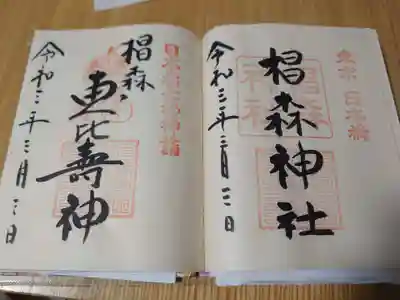 東京 日本橋
椙森神社
椙森神社
令和三年三月三日
日本橋七福神詣
椙森
恵比壽神
令和三年三月三日